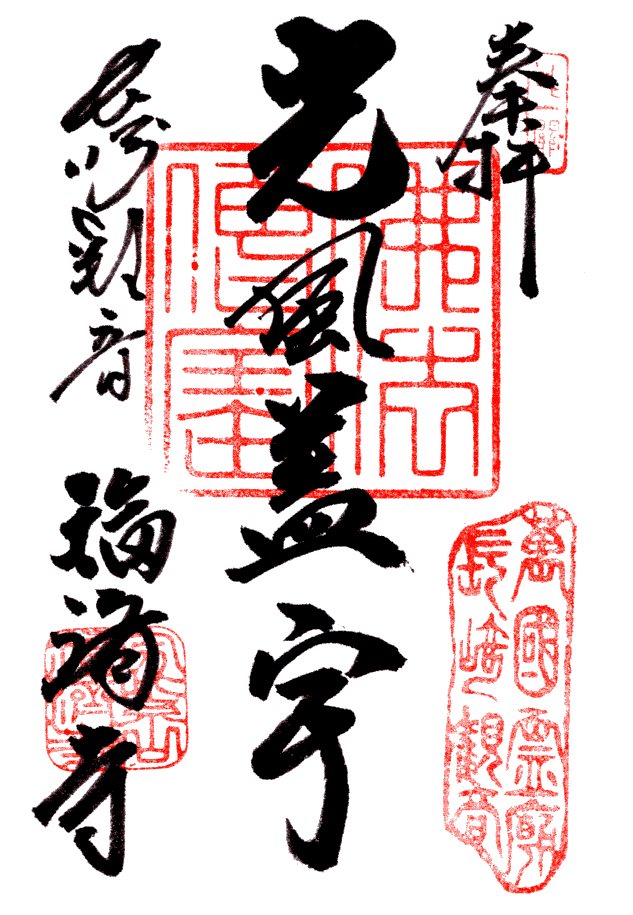 奉拝
光風蓋宇
長崎観音
福済寺
佛法僧寶
萬國霊廟
長崎観音